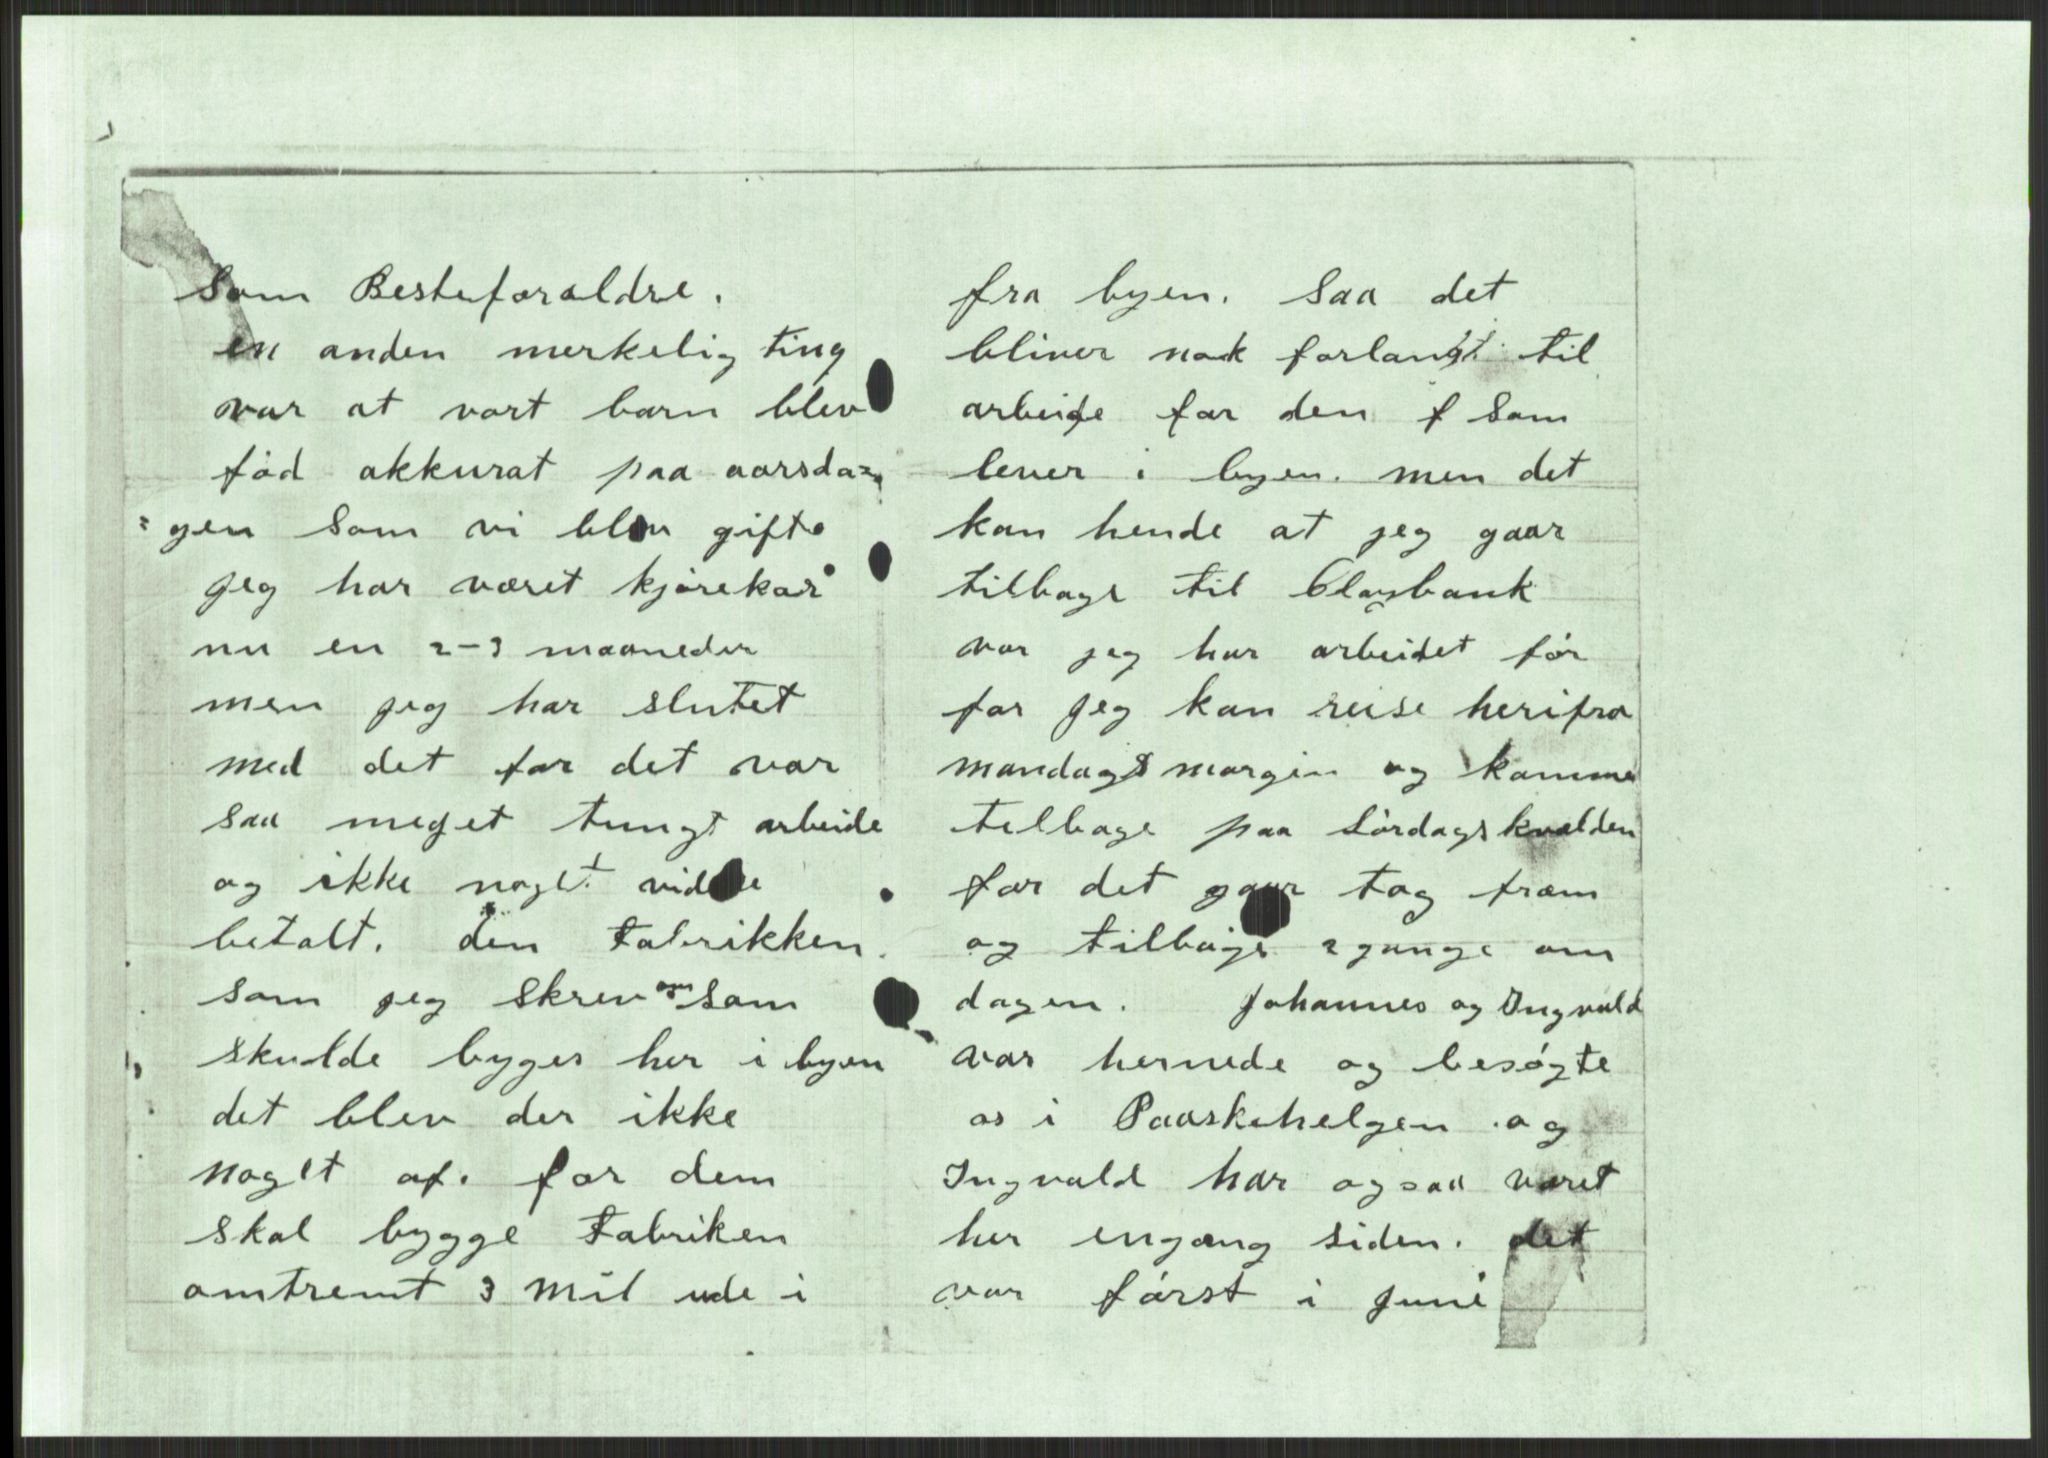 som Besteforældre.
en anden merkelig ting
var at vort barn blev
fød akkurat paa aarsda=
=gen som vi blev gifte
jeg har været kjørekar
nu en 2-3 maaneder
men jeg har slutet
med det for det var
saa meget tungt arbeide
og ikke noget videre
betalt. den Fabrikken
som jeg skrev om som
skulde byges her i byen
det blev der ikke
noget af. for dem
skal bygge Fabriken
omtremt 3 mil ude i
fra byen. saa det
bliver nok forlangt til
arbeide for den som
lever i byen. men det
kan hende at jeg gaar
tilbage til Claybank
vor jeg har arbeidet før
for jeg kan reise herifra
mandags morgin og komme
telbage paa Lørdags kvelden
for det gaar tog fram
og tilbage 2 gange om
dagen. Johannes og Ingvald
var hernede og besøgte
os i Paaskehelgen og
Ingvald har ogsaa været
her engang siden. det
var først i juni